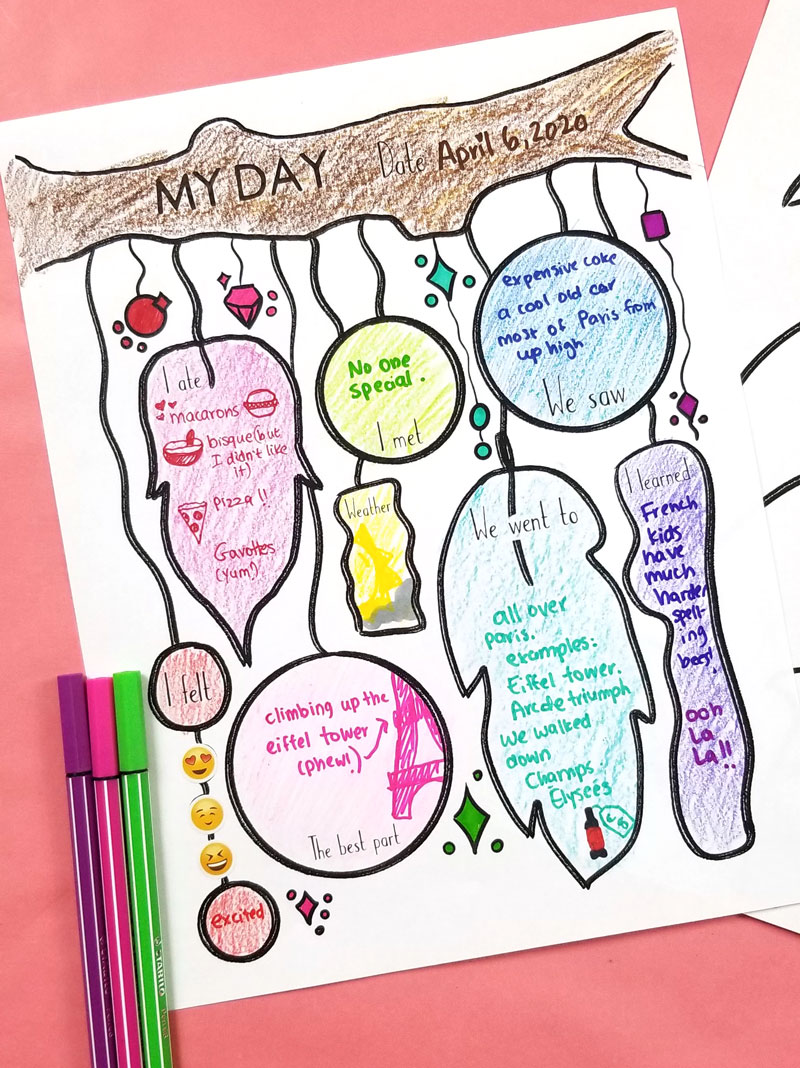 MY DAY Date April 6, 2020
I ate
macarons
bisque (but
I didn't like
it)
Pizza!!
Gavottes
(yum!)
No one
special.
I met
expensive coke
a cool old car
most of Paris from
up high
We saw
Weather
We went to
all over
paris.
examples:
Eiffel tower.
Arcde triumph
We walked
down
Champs
Elyseés
I learned
French
kids
have
much
harder
spell-
ing
bees!
ooh
La
La!!
I felt
excited
climbing up the
eiffel tower
(phew!)
The best part
STABILO